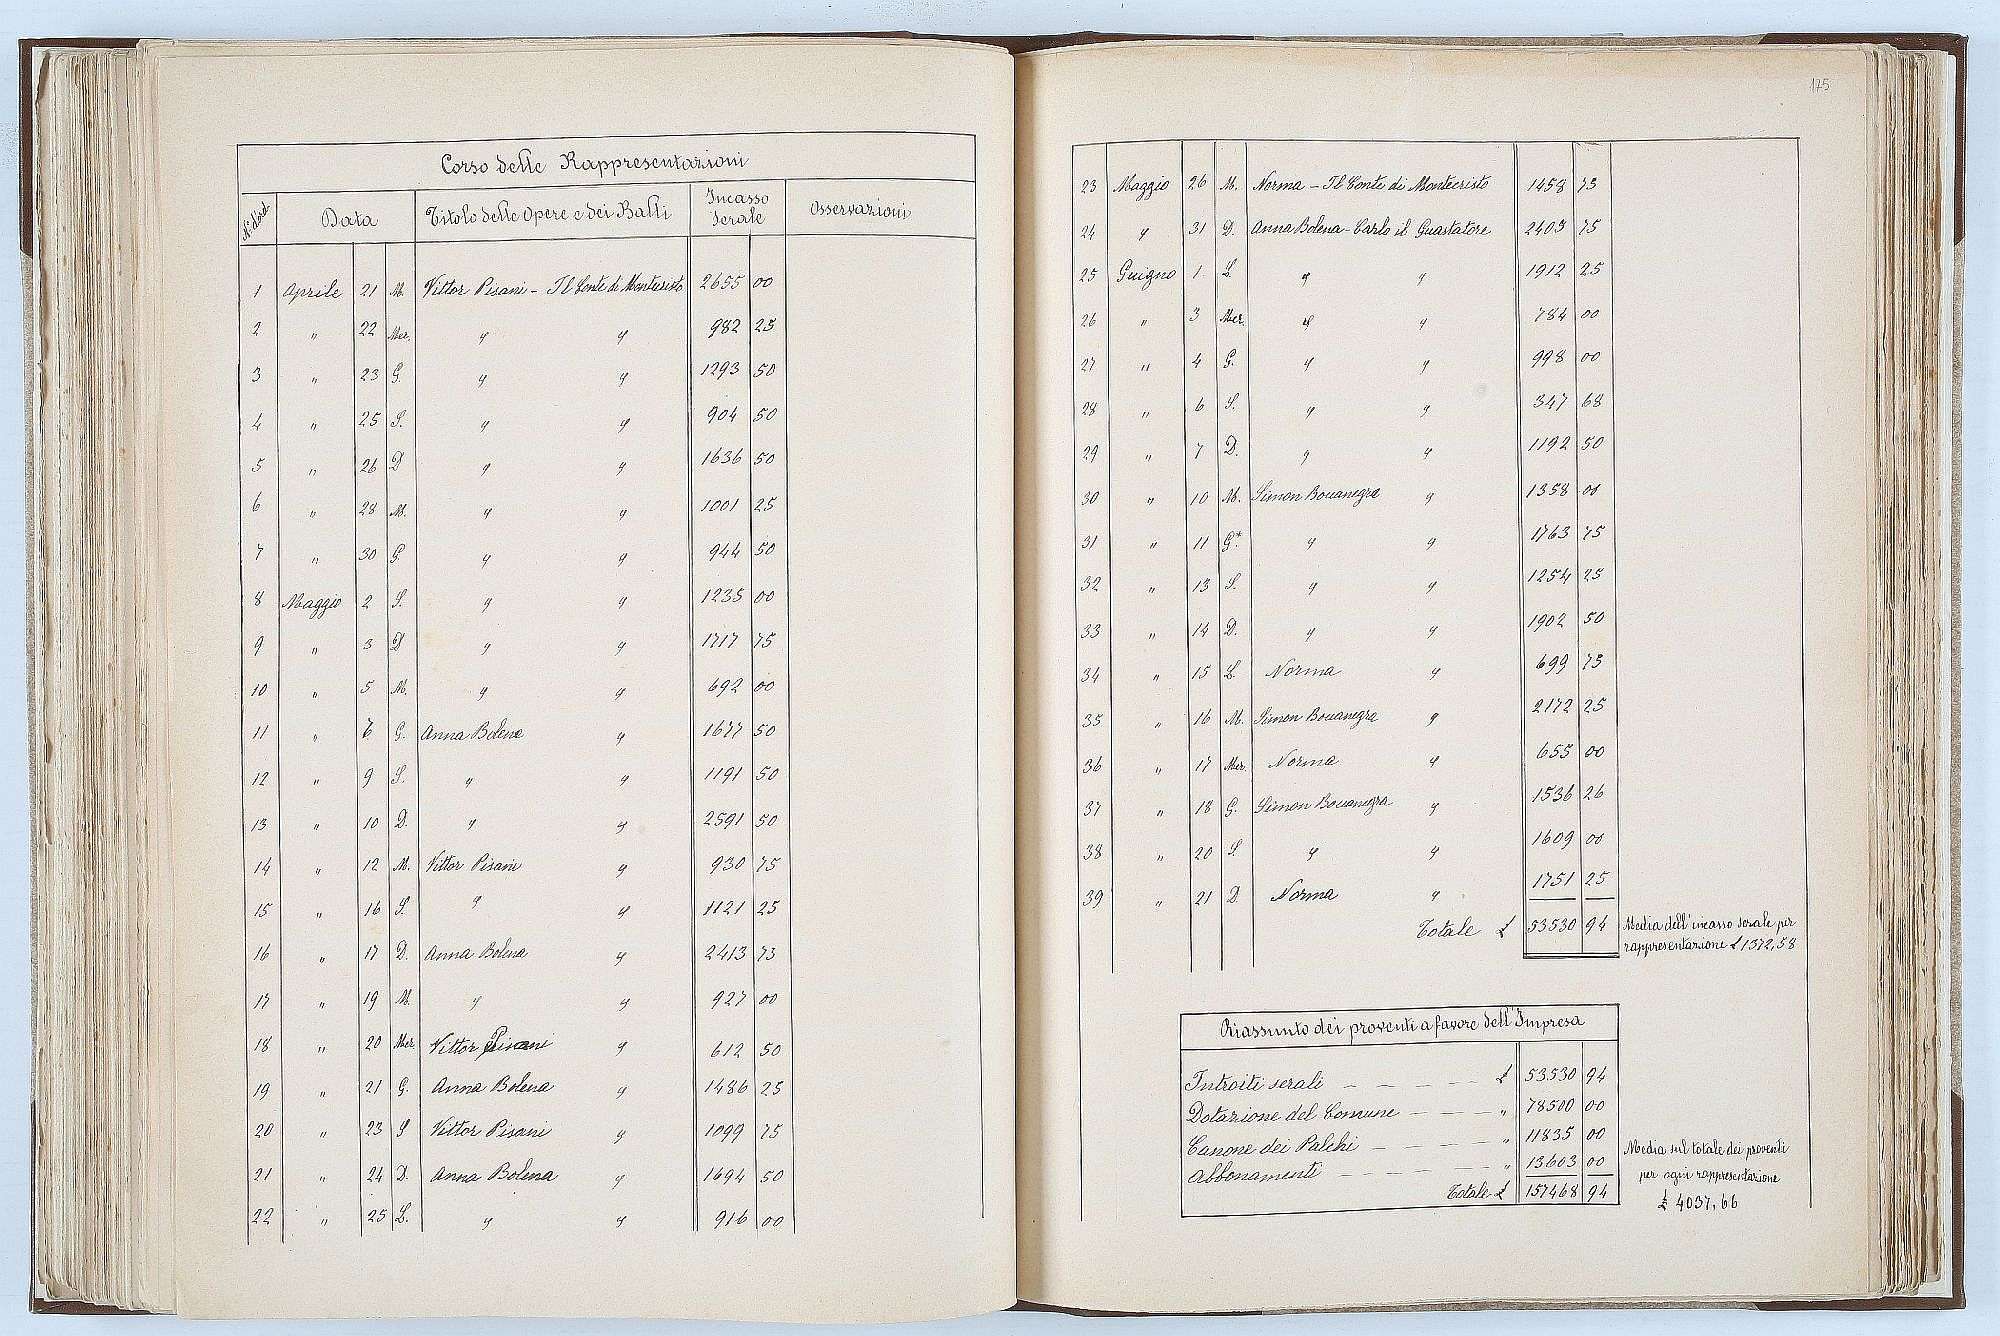 Corso delle Rappresentazioni
N. d'ord. Data Titolo delle Opere e dei Balli Incasso Serale Osservazioni
1 Aprile 21 M. Vittor Pisani - Il Conte di Montecristo 2655 00
2 " 22 Mer. " " 982 25
3 " 23 G. " " 1293 50
4 " 25 S. " " 904 50
5 " 26 D " " 1636 50
6 " 28 M. " " 1001 25
7 " 30 G " " 944 50
8 Maggio 2 S. " " 1235 00
9 " 3 D " " 1717 75
10 " 5 M. " " 692 00
11 " 6 G. Anna Bolena " 1677 50
12 " 9 S. " " 1191 50
13 " 10 D. " " 2591 50
14 " 12 M. Vittor Pisani " 930 75
15 " 16 S. " " 1121 25
16 " 17 D. Anna Bolena " 2413 73
17 " 19 M. " " 927 00
18 " 20 Mer Vittor Pisani " 612 50
19 " 21 G. Anna Bolena " 1486 25
20 " 23 S Vittor Pisani " 1099 75
21 " 24 D. Anna Bolena " 1694 50
22 " 25 L. " " 916 00
175
23 Maggio 26 M. Norma - Il Conte di Montecristo 1458 73
24 " 31 D. Anna Bolena - Carlo il Guastatore 2403 75
25 Giugno 1. L " " 1912 25
26 " 3 Mer. " " 784 00
27 " 4 G. " " 998 00
28 " 6 S. " " 347 68
29 " 7 D. " " 1192 50
30 " 10 M. Simon Bocanegra " 1358 00
31 " 11 G.* " " 1763 75
32 " 13 S. " " 1254 25
33 " 14 D. " " 1902 50
34 " 15 L Norma " 699 73
35 " 16 M. Simon Bocanegra " 2172 25
36 " 17 Mer. Norma " 655 00
37 " 18 G. Simon Bocanegra " 1536 26
38 " 20 S. " " 1609 00
39 " 21 D. Norma " 1751 25
Totale £ 53530 94
Media dell'incasso serale per
rappresentazione £ 1372,58
Riassunto dei proventi a favore dell'Impresa
Introiti serali - - - - - £ 53530 94
Dotazione del Comune - - - - " 78500 00
Canone dei Palchi - - - - - " 11835 00
Abbonamenti - - - - - - " 13603 00
Totale £ 157468 94
Media sul totale dei proventi
per ogni rappresentazione
£ 4037,66